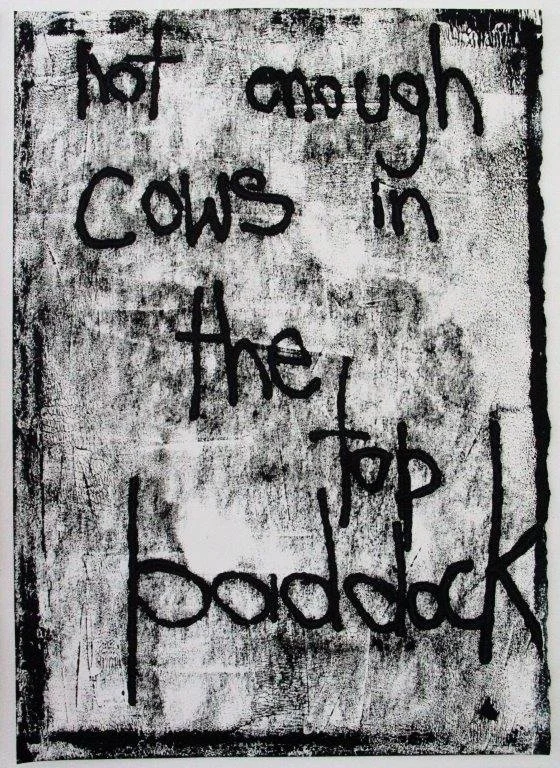 not enough
cows in
the
top
paddock.